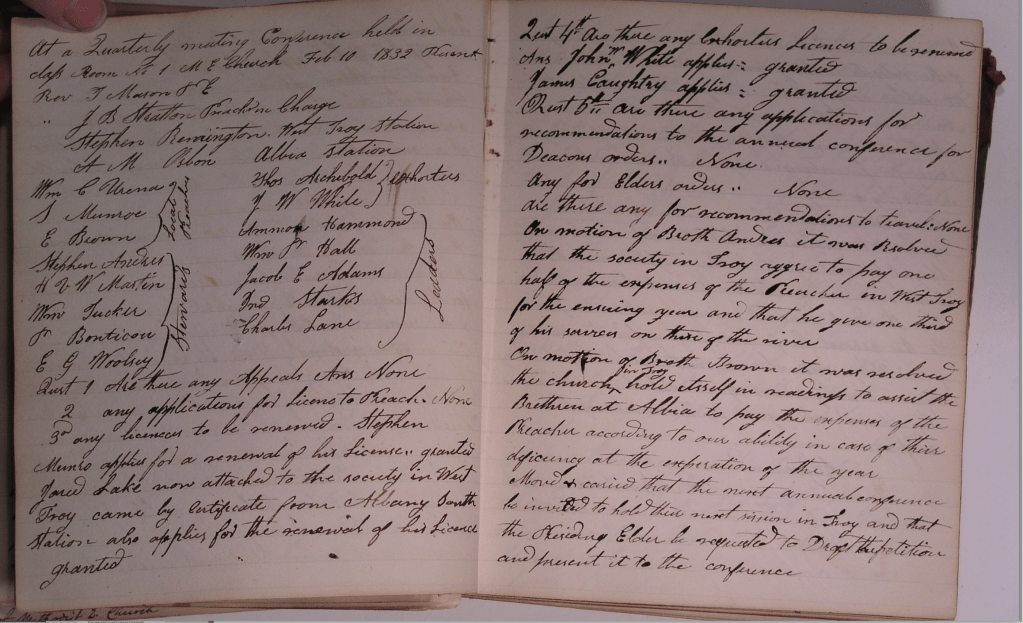 At a Quarterly meeting Conference held in
class Room No 1 M E Church Feb 10 1832 Present
Rev T Mason P E
" J B Stratton Preach in Charge
Stephen Remington. West Troy Station
A M Osbon Albia Station
Wm C Urena
S Munroe
E Brown
Local Preachers
Stephen Andres
H V W Masten
Wm Tucker
Jr Bonticou
E G Woolsey
Stewards
Thos Archebold
J W White
Exhorters
Ammon Hammond
Wm Jr Hall
Jacob E Adams
Ind Starks
Charles Lane
Leaders
Qust 1 Are there any Appeals Ans None
2 any applications for License to Preach. None
3rd any licences to be renewed. Stephen
Munro applies for a renewal of his License.. granted
Jared Lake now attached to the society in West
Troy came by Certificate from Albany South
Station also applies for the renewal of his Licence
granted
Qust 4th Are there any Exhorters Licences to be renewed
Ans John W White applies = granted
James Caughtry applies = granted
Quest 5th are there any applications for
recommendations to the annual conference for
Deacons orders.. None.
Any for Elders orders.. None
are there any for recommendations to travel: None
On motion of Broth Andres it was Resolved
that the society in Troy aggree to pay one
half of the expenses of the Preacher in West Troy
for the ensuing year and that he give one third
of his services on this side of the river
On motion of Broth Brown it was resolved
the church in Troy hold itself in readings to assist the
Brethren at Albia to pay the expenses of the
Preacher according to our ability in case of their
deficiency at the experation of the year
Moved & caried that the next annual conference
be invited to hold their next session in Troy and that
the Presiding Elder be requested to Draft the petition
and present it to the conference